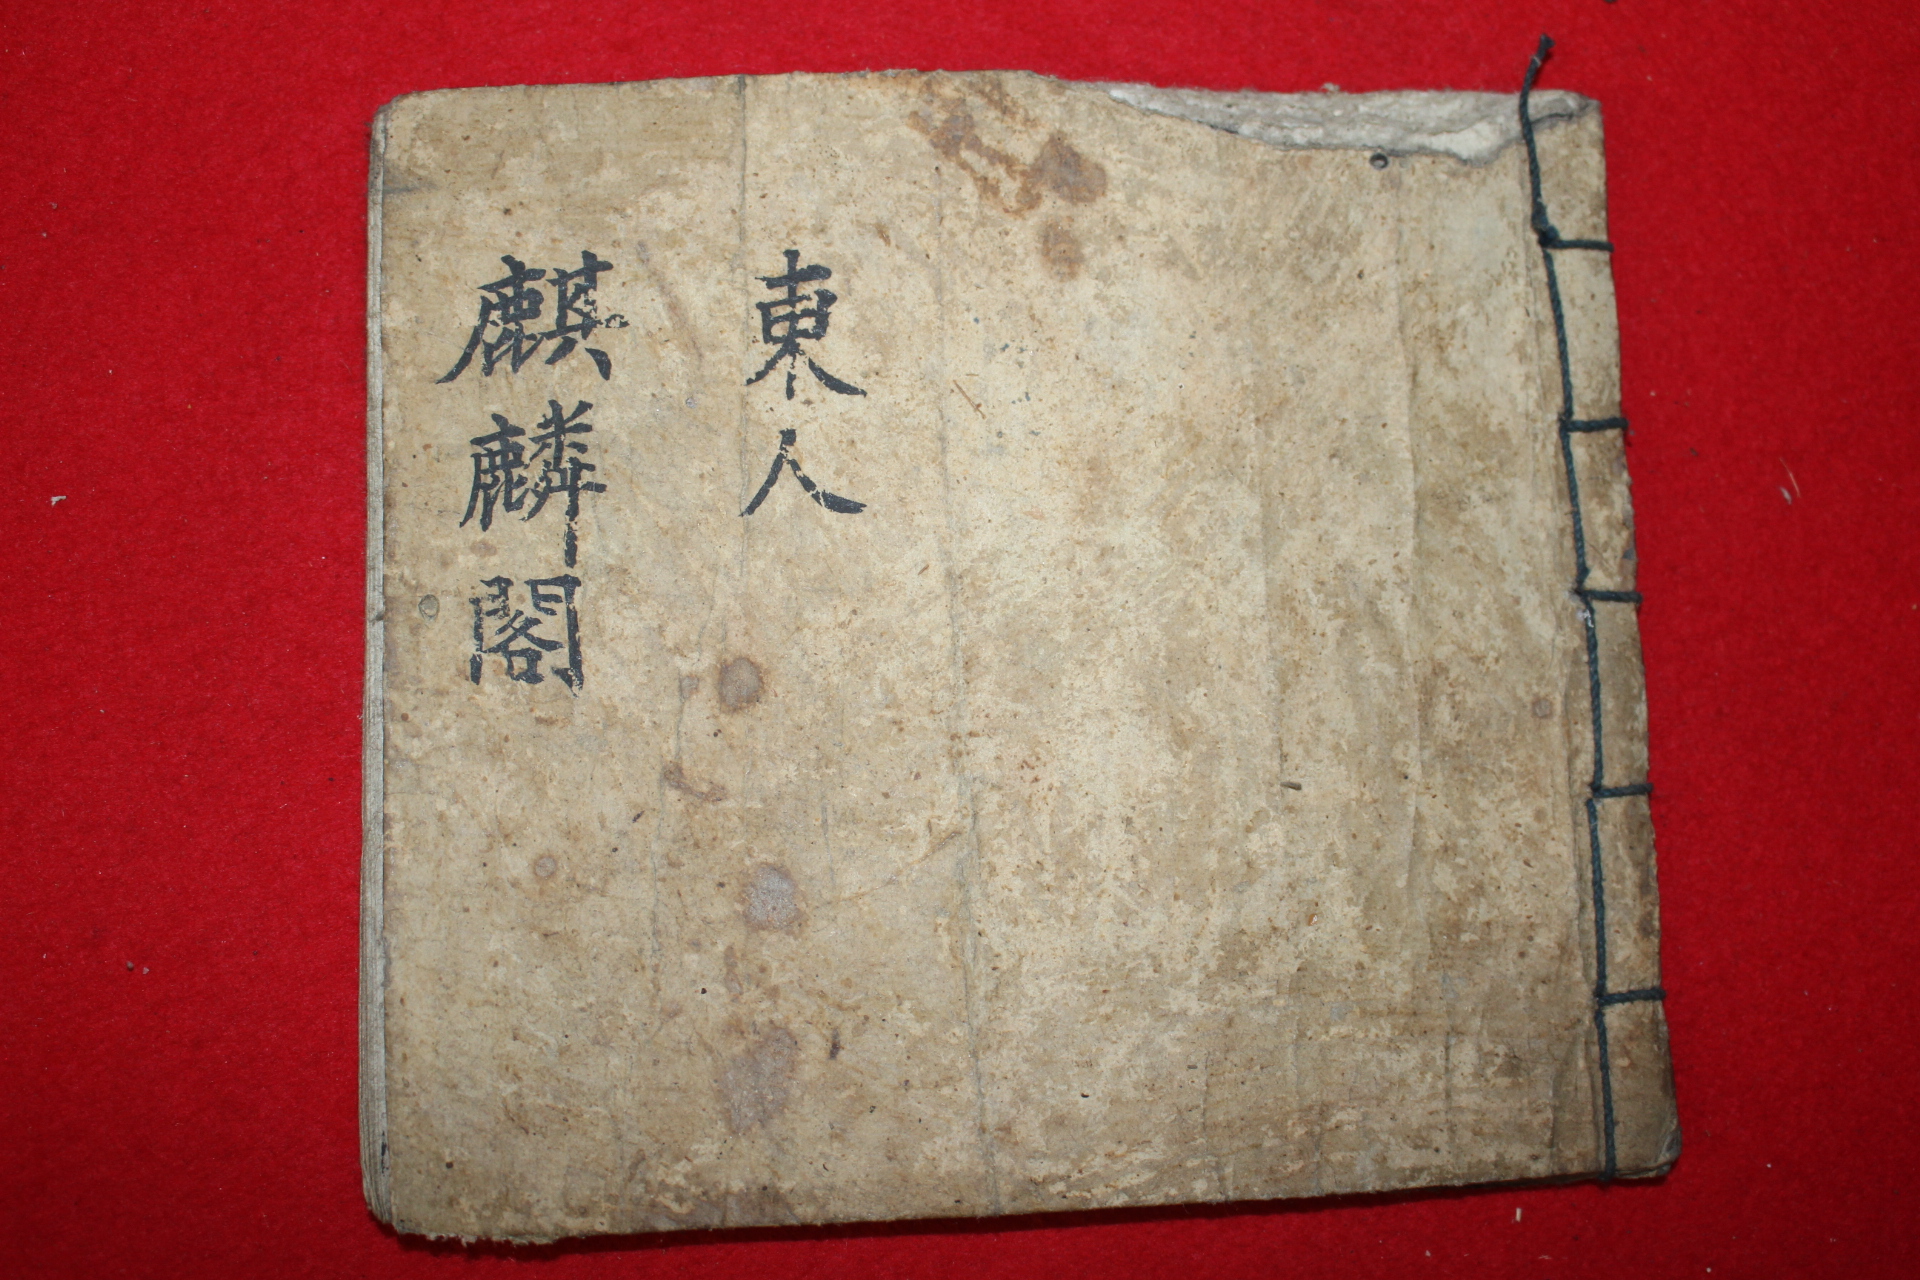 東人
麒麟閣